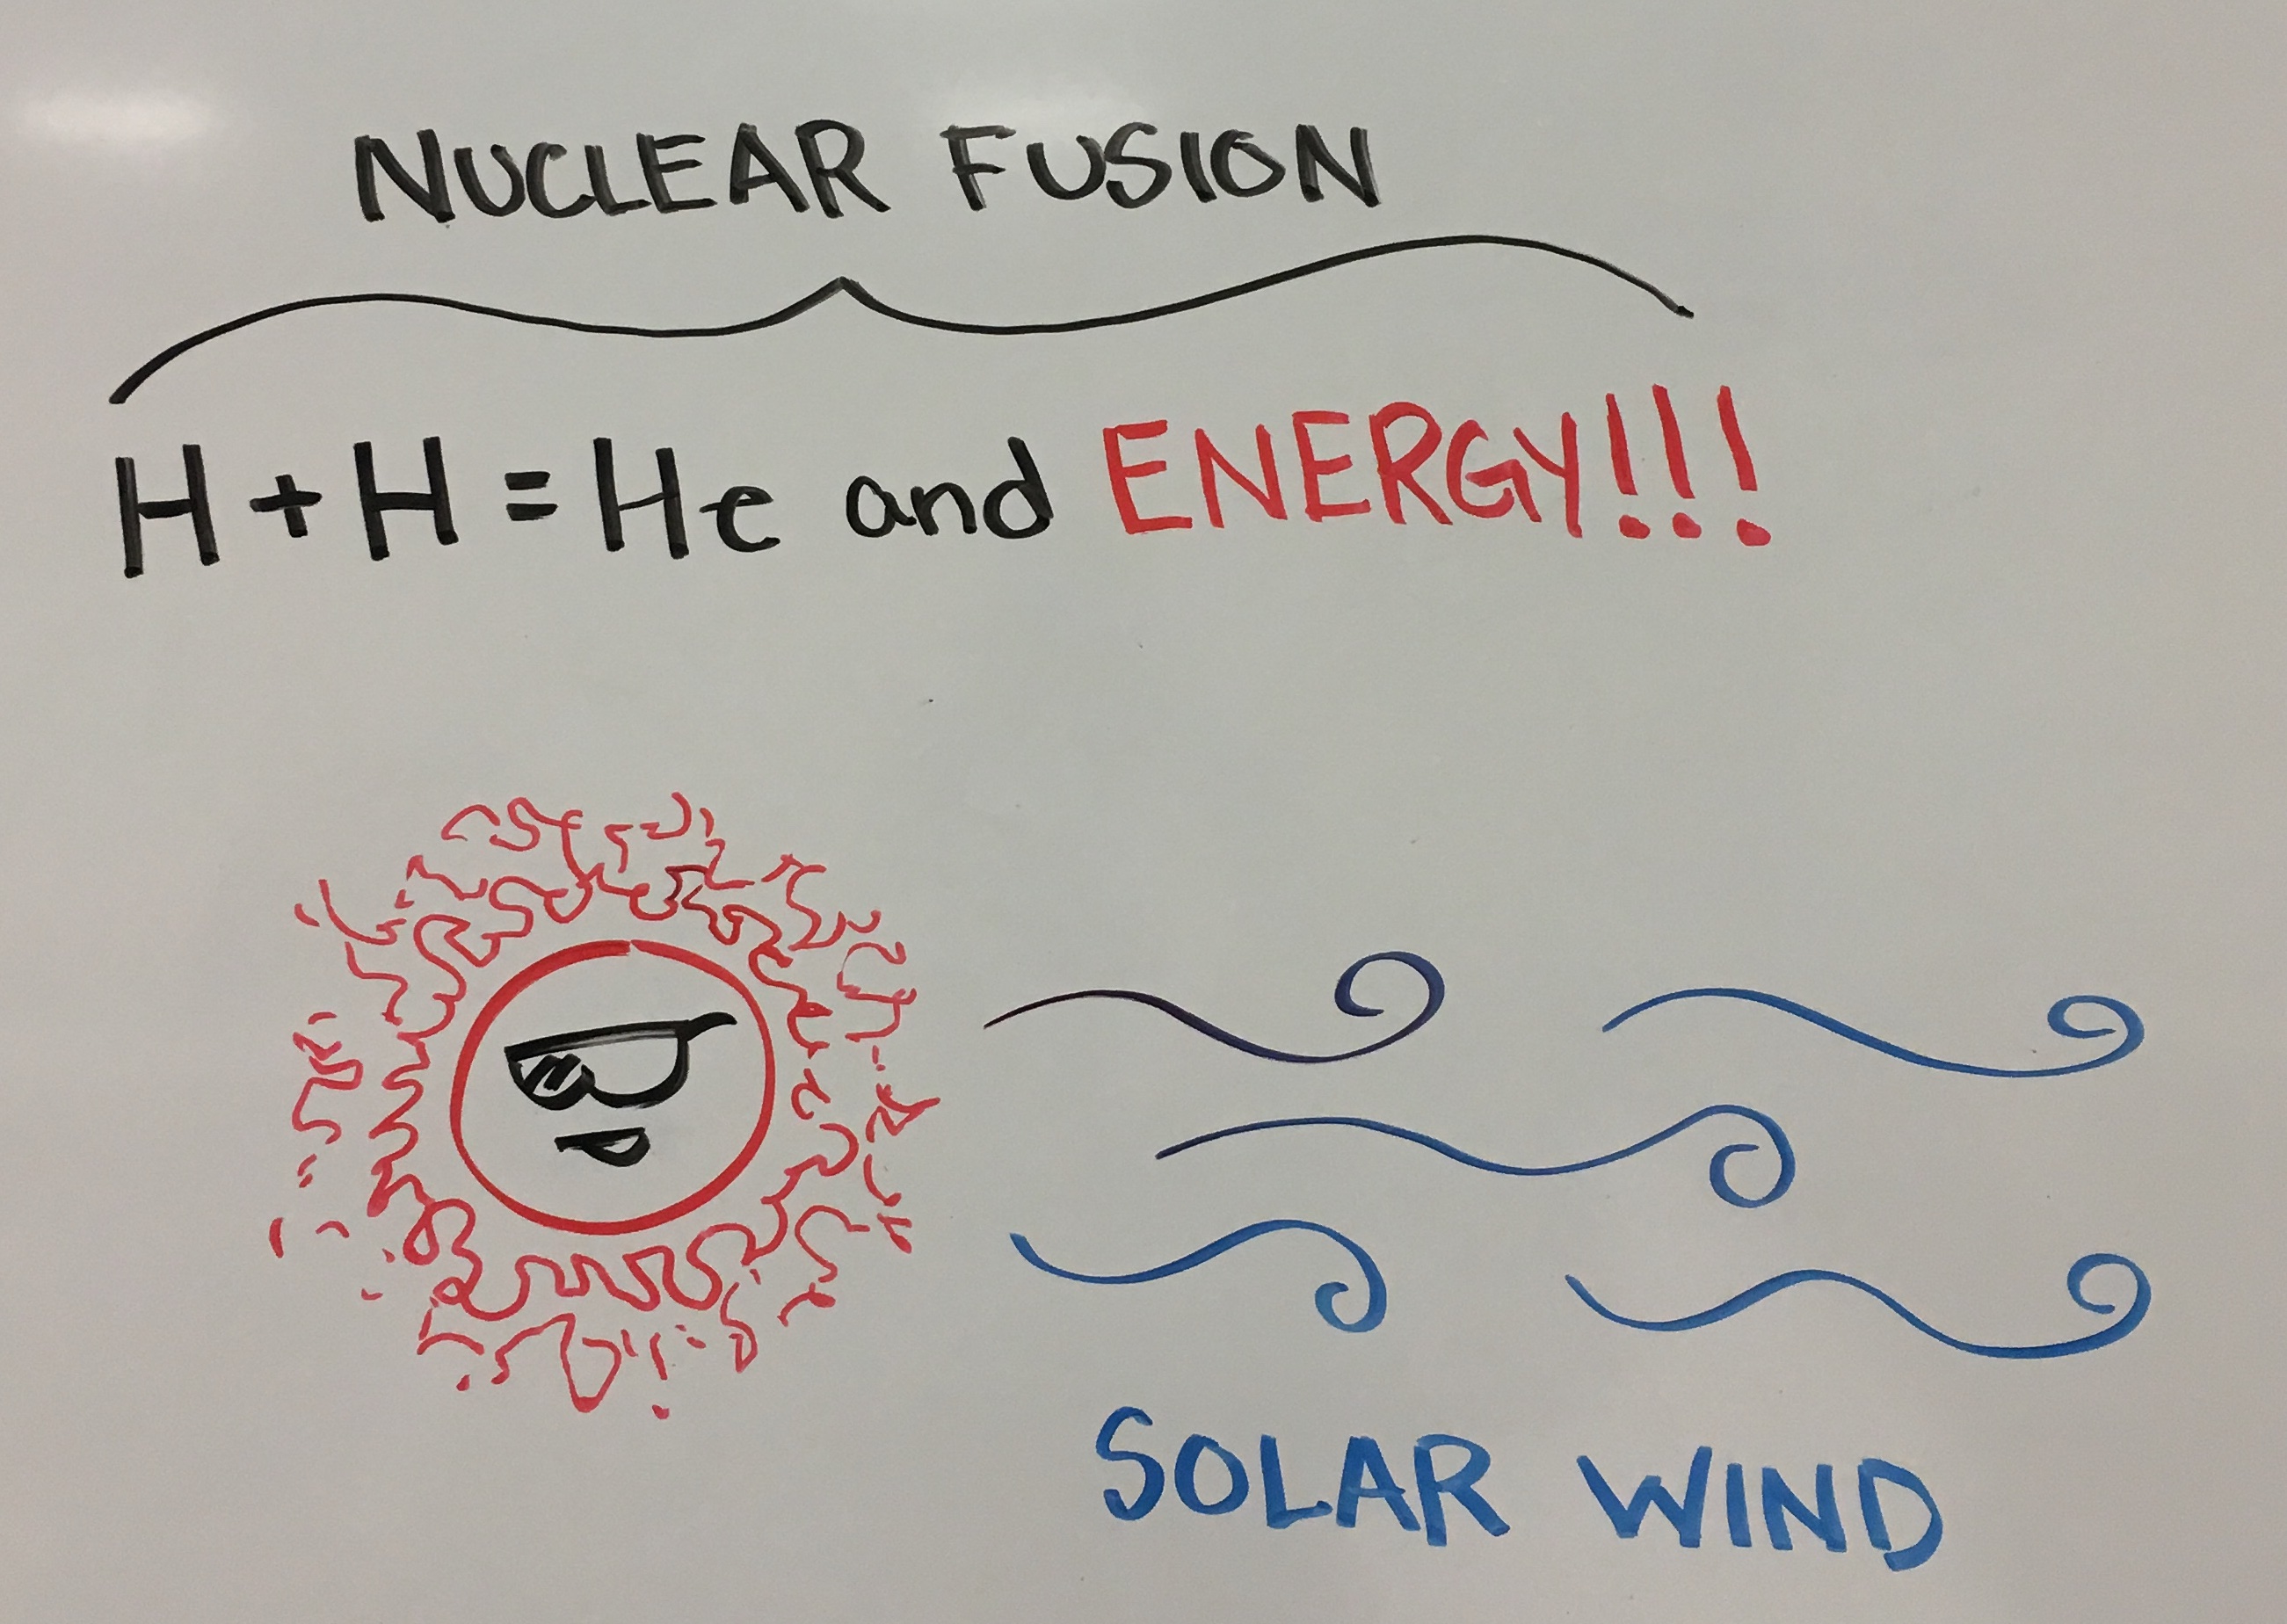 NUCLEAR FUSION
H + H = He and ENERGY!!!
SOLAR WIND